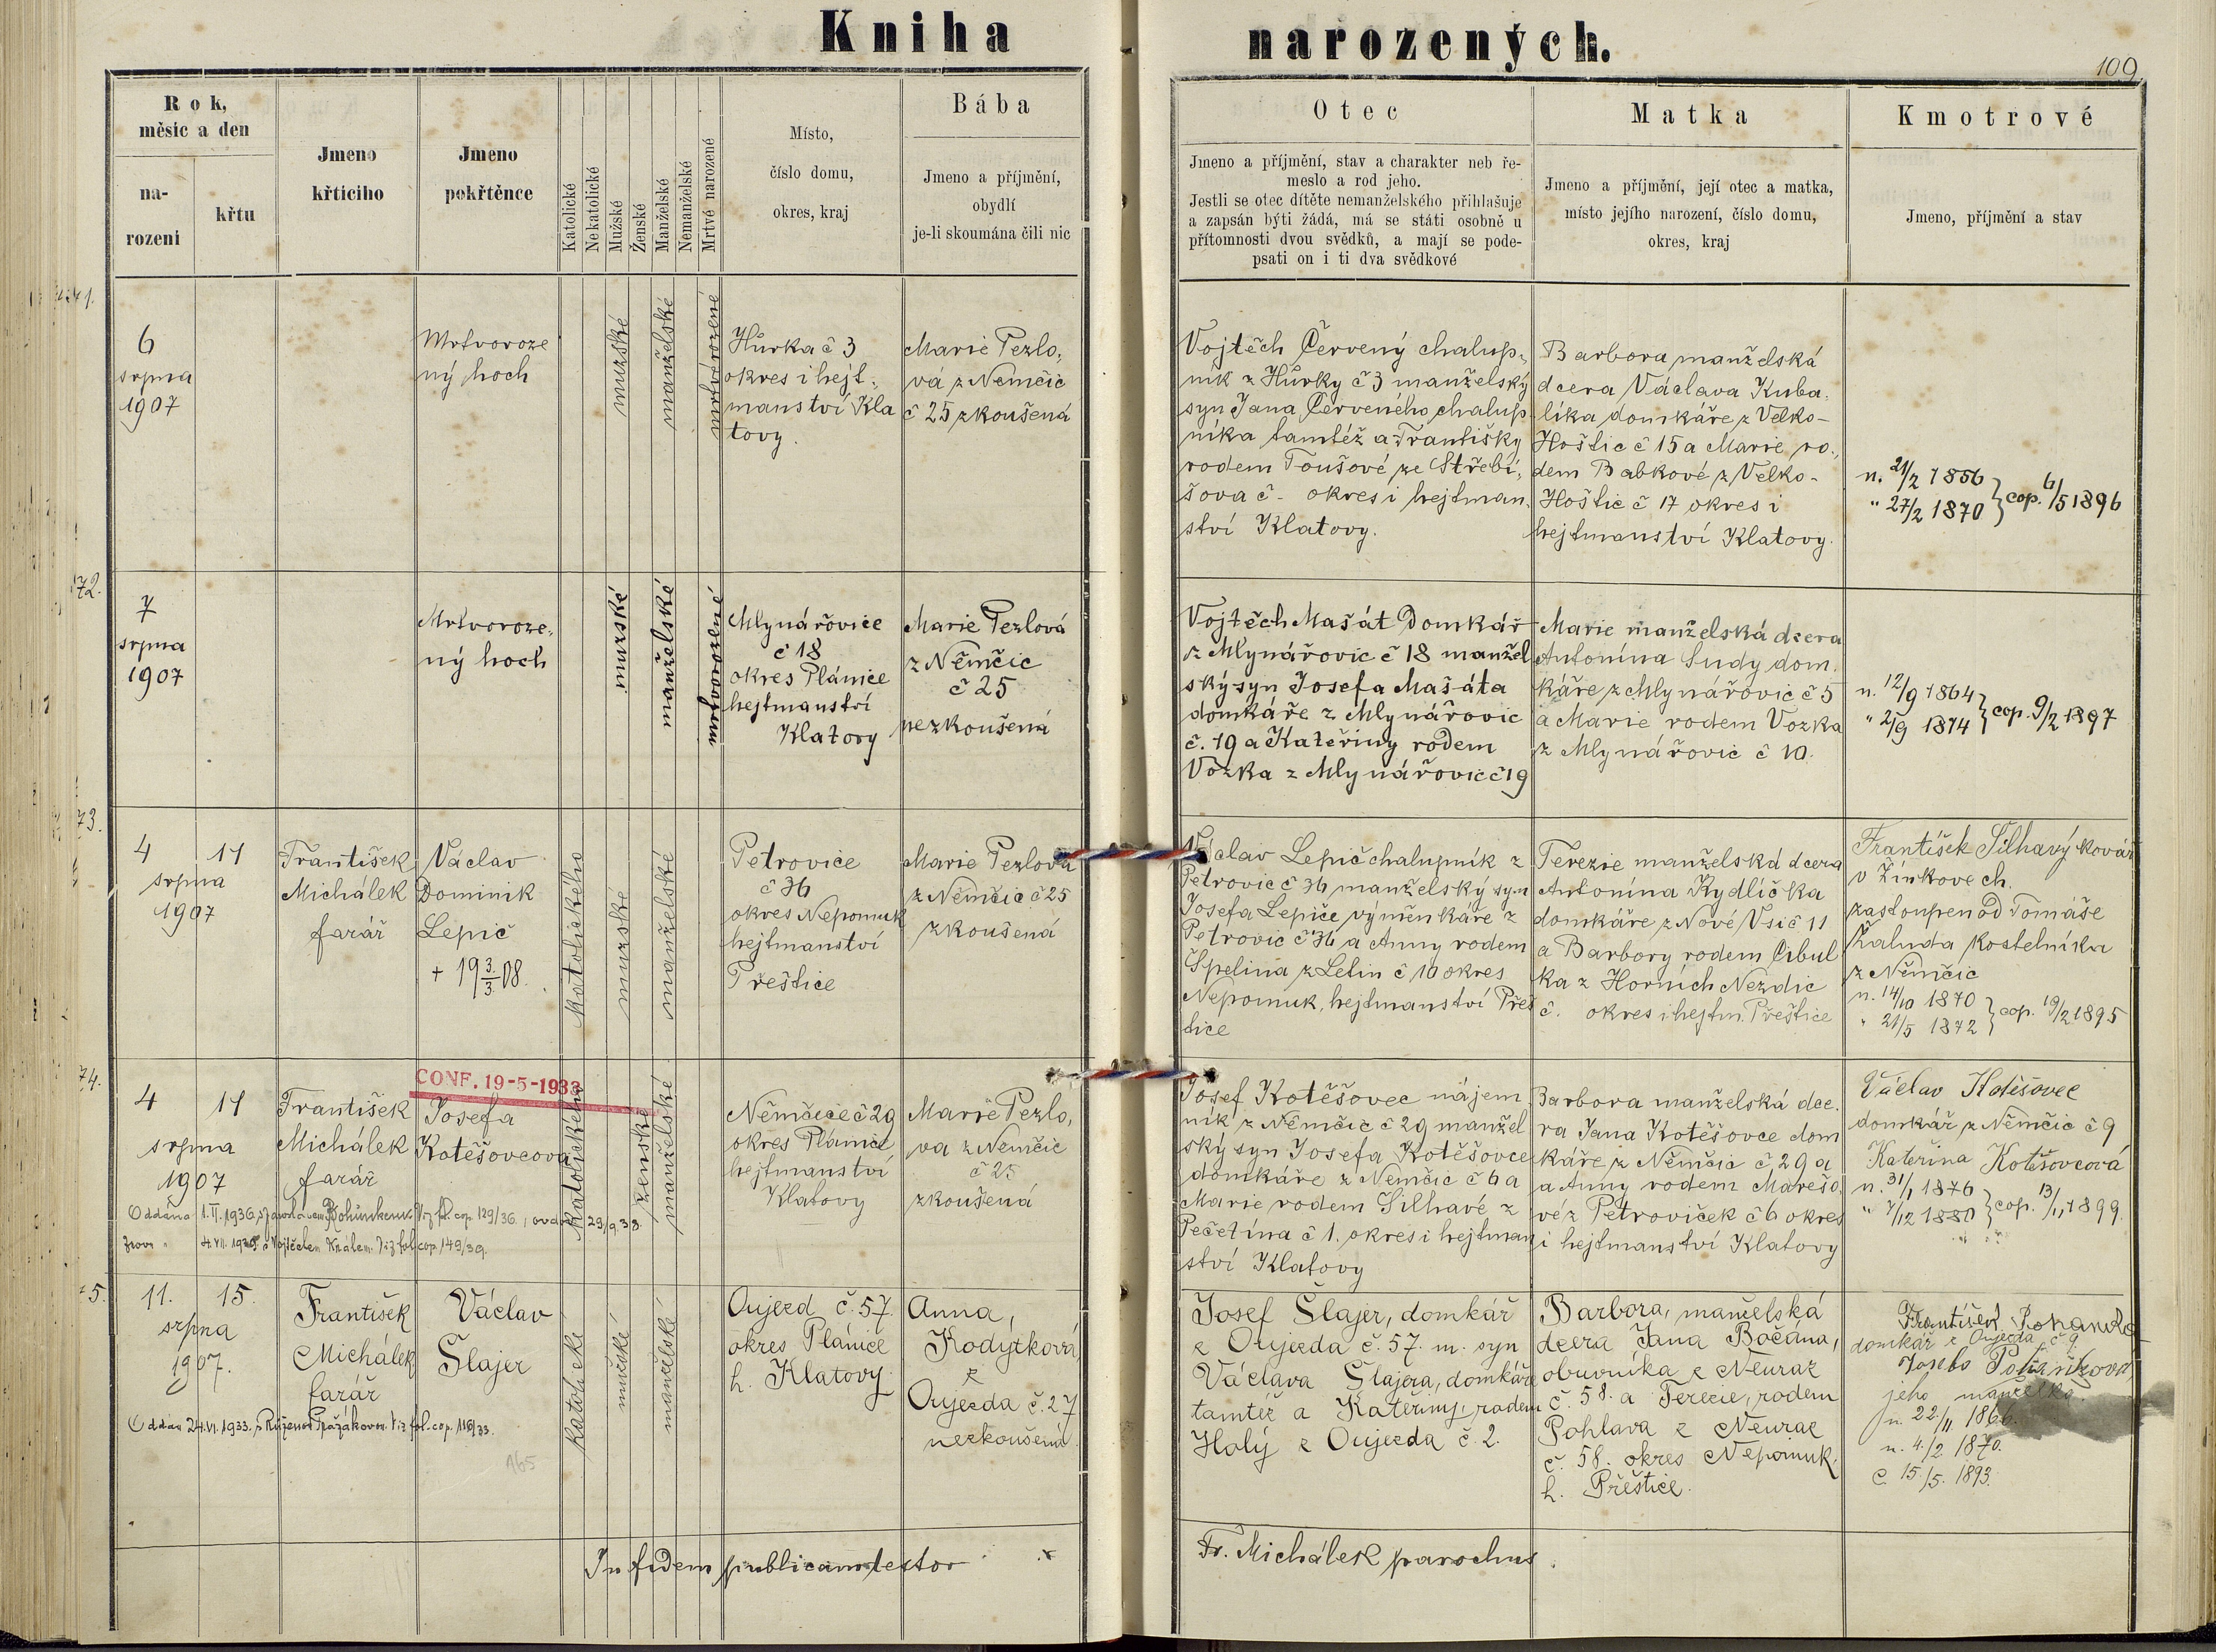 Kniha narozených.
109
Rok,
měsíc a den
na-
rození
křtu
Jmeno
křticiho
Jmeno
pokřtěnce
Katolické
Nekatolické
Mužské
Ženské
Manželské
Nemanželské
Mrtvé narozené
Místo,
číslo domu,
okres, kraj
Bába
Jmeno a příjmění,
obydlí
je-li skoumána čili nic
Otec
Jmeno a příjmění, stav a charakter neb ře-
meslo a rod jeho.
Jestli se otec dítěte nemanželského přihlašuje
a zapsán býti žádá, má se státi osobně u
přítomnosti dvou svědků, a mají se pode-
psati on i ti dva svědkové
Matka
Jmeno a příjmění, její otec a matka,
místo jejího narození, číslo domu,
okres, kraj
Kmotrové
Jmeno, příjmění a stav
6
srpna
1907
Mrtvoroze
ný hoch
mužské
manželské
mrtvěrozené
Hůrka č 3
okres i hejt-
manství Kla
tovy.
Marie Pezlo-
vá z Němčic
č 25 zkoušená
Vojtěch Červený chalup-
ník z Hůrky č 3 manželský
syn Jana Červeného chalup-
níka tamtéž a Františky
rodem Toušové ze Střebí-
šova č - okres i hejtman-
ství Klatovy.
Barbora manželská
dcera Václava Kuba-
líka domkáře z Velko-
Hoštic č 15 a Marie ro-
dem Babkové z Velko-
Hoštic č 17 okres i
hejtmanství Klatovy.
n. 21/2 1856
" 27/2 1870 } cop. 6/5 1896
72.
7
srpna
1907
Mrtvoroze-
ný hoch
mužské
manželské
mrtvorozené
Mlynářovice
č 18
okres Plánice
hejtmanství
Klatovy
Marie Pezlová
z Němčic
č 25
nezkoušená
Vojtěch Mašát Domkář
z Mlynářovic č 18 manžel
ský syn Josefa Mašáta
domkáře z Mlynářovic
č. 19 a Kateřiny rodem
Vozka z Mlynářovic č 19
Marie manželská dcera
Antonína Sudy dom-
káře z Mlynářovic č 5
a Marie rodem Vozka
z Mlynářovic č 10.
n. 12/9 1864
" 2/9 1874 } cop. 9/2 1897
73.
4 11
srpna
1907
František
Michálek
farář
Václav
Dominik
Lepič
+ 19 3/3 08.
Katolického
mužské
manželské
Petrovice
č 36
okres Nepomuk
hejtmanství
Přeštice
Marie Pezlová
z Němčic č 25
zkoušená
Václav Lepič chalupník z
Petrovic č 36 manželský syn
Josefa Lepiče výměnkáře z
Petrovic č 36 a Anny rodem
Špelina z Letin č 10 okres
Nepomuk, hejtmanství Přeš
tice
Terezie manželská dcera
Antonína Rydlíčka
domkáře z Nové Vsi č 11
a Barbory rodem Cibul
ka z Horních Nezdic
č. okres i hejtm. Přeštice
František Silhavý kovář
v Žinkovech.
zastoupen od Tomáše
Kaluda kostelníka
z Němčic
n. 14/10 1870
" 21/5 1872 } cop. 19/2 1895
74.
4 11
srpna
1907
František
Michálek
farář
CONF. 19-5-1933
Josefa
Kotěšovcova
Katolického
ženské
manželské
Němčice č 29
okres Plánice
hejtmanství
Klatovy
Marie Pezlo-
va z Němčic
č 25
zkoušená
Josef Kotěšovec nájem
ník z Němčic č 29 manžel
ský syn Josefa Kotěšovce
domkáře z Němčic č 6 a
Marie rodem Silhavé z
Pečetína č 1. okres i hejtman
ství Klatovy
Barbora manželská dce-
ra Jana Kotěšovce dom
káře z Němčic č 29 a
a Anny rodem Marešo-
vé z Petroviček č 6 okres
i hejtmanství Klatovy
Václav Kotěšovec
domkář z Němčic č 9
Kateřina Kotěšovcová
n. 31/1 1876
" 7/12 1880 } cop. 13/11 1899.
Oddána 1.II.1936 viz fol. cop. 129/36., ovdov. 29/9.38.
Znovu " 4.VII.1939. s Vojtěchem Králem. Viz fol. cop. 149/39.
75.
11. 15.
srpna
1907.
František
Michálek
farář
Václav
Šlajer
katolické
mužské
manželské
Oujezd č. 57.
okres Plánice
h. Klatovy.
Anna,
Kodytková
z
Oujezda č. 27
nezkoušená.
Josef Šlajer, domkář
z Oujezda č. 57. m. syn
Václava Šlajera, domkáře
tamtéž a Kateřiny, rodem
Holý z Oujezda č. 2.
Barbora, manželská
dcera Jana Bočana,
obuvníka z Neuraz
č. 58. a Terezie, rodem
Pohlava z Neuraz
č. 58. okres Nepomuk,
h. Přeštice.
František
domkář z Oujezda č 9.
jeho manželka.
n. 22/11 1866.
n. 4./2. 1870.
c. 15./5. 1893.
Oddán 24.VI.1933. s Růženou Pražákovou. Viz fol. cop. 116/33.
165
In fidem publicam testor
Fr. Michálek parochus.